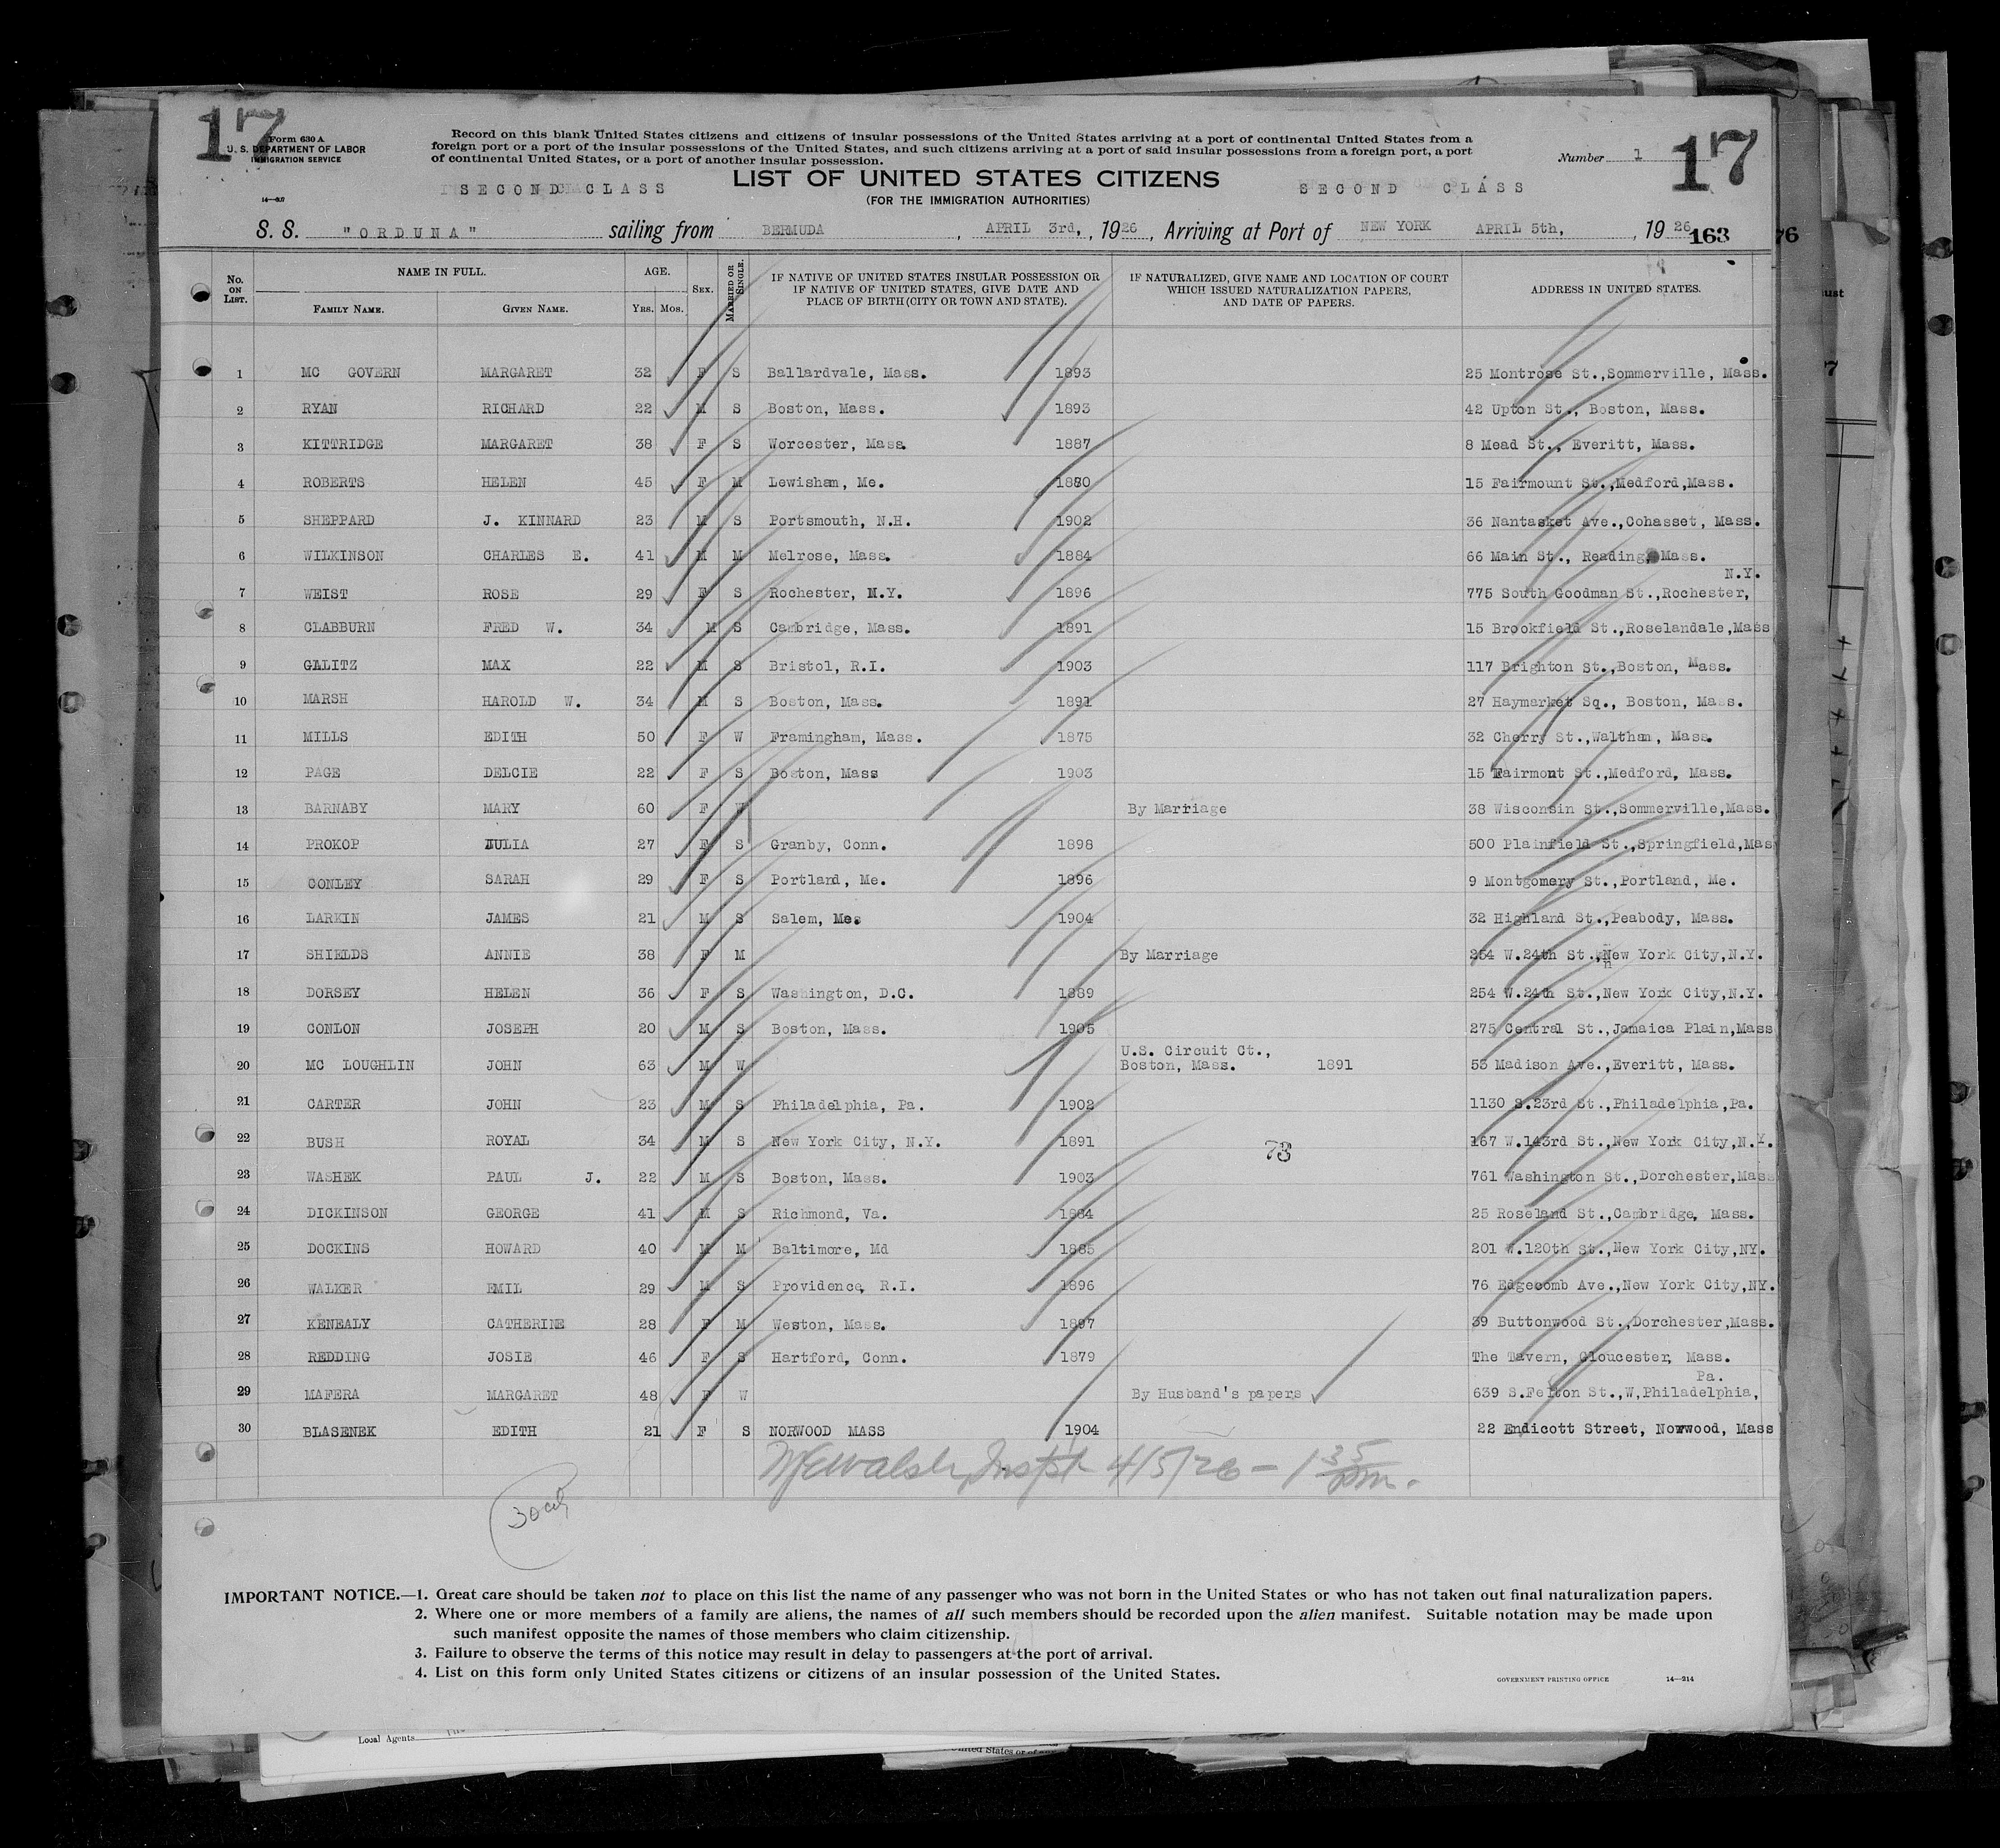 17
17
Form 630 A
U. S. DEPARTMENT OF LABOR
IMMIGRATION SERVICE
Record on this blank United States citizens and citizens of insular possessions of the United States arriving at a port of continental United States from a
foreign port or a port of the insular possessions of the United States, and such citizens arriving at a port of said insular possessions from a foreign port, a port
of continental United States, or a port of another insular possession.
Number 1
SECOND CLASS LIST OF UNITED STATES CITIZENS SECOND CLASS
(FOR THE IMMIGRATION AUTHORITIES)
S. S. "ORDUNA" sailing from BERMUDA, APRIL 3rd, , 1926, Arriving at Port of NEW YORK APRIL 5th, , 1926
163
76
No. ON LIST. NAME IN FULL. AGE. SEX. MARRIED OR SINGLE. IF NATIVE OF UNITED STATES INSULAR POSSESSION OR IF NATIVE OF UNITED STATES, GIVE DATE AND PLACE OF BIRTH (CITY OR TOWN AND STATE). IF NATURALIZED, GIVE NAME AND LOCATION OF COURT WHICH ISSUED NATURALIZATION PAPERS, AND DATE OF PAPERS. ADDRESS IN UNITED STATES.
FAMILY NAME. GIVEN NAME. YRS. MOS.
1 MC GOVERN MARGARET 32 F S Ballardvale, Mass. 1893 25 Montrose St.,Sommerville, Mass.
2 RYAN RICHARD 22 M S Boston, Mass. 1893 42 Upton St., Boston, Mass.
3 KITTRIDGE MARGARET 38 F S Worcester, Mass. 1887 8 Mead St., Everitt, Mass.
4 ROBERTS HELEN 45 F M Lewisham, Me. 1880 15 Fairmount St.,Medford,Mass.
5 SHEPPARD J. KINNARD 23 M S Portsmouth, N.H. 1902 36 Nantasket Ave.,Cohasset, Mass.
6 WILKINSON CHARLES E. 41 M M Melrose, Mass. 1884 66 Main St., Reading, Mass.
N.Y.
7 WEIST ROSE 29 F S Rochester, N.Y. 1896 775 South Goodman St.,Rochester,
8 CLABBURN FRED W. 34 M S Cambridge, Mass. 1891 15 Brookfield St.,Roselandale,Mass
9 GALITZ MAX 22 M S Bristol, R.I. 1903 117 Brighton St.,Boston, Mass.
10 MARSH HAROLD W. 34 M S Boston, Mass. 1891 27 Haymarket Sq., Boston, Mass.
11 MILLS EDITH 50 F W Framingham, Mass. 1875 32 Cherry St.,Waltham, Mass.
12 PAGE DELCIE 22 F S Boston, Mass 1903 15 Fairmont St.,Medford, Mass.
13 BARNABY MARY 60 F W By Marriage 38 Wisconsin St.,Sommerville,Mass.
14 PROKOP JULIA 27 F S Granby, Conn. 1898 500 Plainfield St.,Springfield,Mas
15 CONLEY SARAH 29 F S Portland, Me. 1896 9 Montgomery St.,Portland, Me.
16 LARKIN JAMES 21 M S Salem, Me. 1904 32 Highland St.,Peabody, Mass.
17 SHIELDS ANNIE 38 F M By Marriage 254 W.24th St.,New York City,N.Y.
18 DORSEY HELEN 36 F S Washington, D.C. 1889 254 W.24th St.,New York City,N.Y.
19 CONLON JOSEPH 20 M S Boston, Mass. 1905 275 Central St.,Jamaica Plain,Mass
U.S. Circuit Ct.,
20 MC LOUGHLIN JOHN 63 M W Boston, Mass. 1891 53 Madison Ave.,Everitt, Mass.
21 CARTER JOHN 23 M S Philadelphia, Pa. 1902 1130 S.23rd St.,Philadelphia,Pa.
22 BUSH ROYAL 34 M S New York City, N.Y. 1891 167 W.143rd St.,New York City,N.Y.
73
23 WASHEK PAUL J. 22 M S Boston, Mass. 1903 761 Washington St.,Dorchester,Mass
24 DICKINSON GEORGE 41 M S Richmond, Va. 1884 25 Roseland St.,Cambridge, Mass.
25 DOCKINS HOWARD 40 M M Baltimore, Md 1885 201 W.120th St.,New York City,NY.
26 WALKER EMIL 29 M S Providence, R.I. 1896 76 Edgecomb Ave.,New York City,NY.
27 KENEALY CATHERINE 28 F M Weston, Mass. 1897 39 Buttonwood St.,Dorchester,Mass.
28 REDDING JOSIE 46 F S Hartford, Conn. 1879 The Tavern, Gloucester, Mass.
Pa.
29 MAFERA MARGARET 48 F W By Husband's papers 639 S.Felton St.,W,Philadelphia,
30 BLASENEK EDITH 21 F S NORWOOD MASS 1904 22 Endicott Street, Norwood, Mass
Walsh, Inspt 4/5/26 - 1 35 pm.
IMPORTANT NOTICE.—1. Great care should be taken not to place on this list the name of any passenger who was not born in the United States or who has not taken out final naturalization papers.
2. Where one or more members of a family are aliens, the names of all such members should be recorded upon the alien manifest. Suitable notation may be made upon
such manifest opposite the names of those members who claim citizenship.
3. Failure to observe the terms of this notice may result in delay to passengers at the port of arrival.
4. List on this form only United States citizens or citizens of an insular possession of the United States.
GOVERNMENT PRINTING OFFICE 14—214
Local Agents